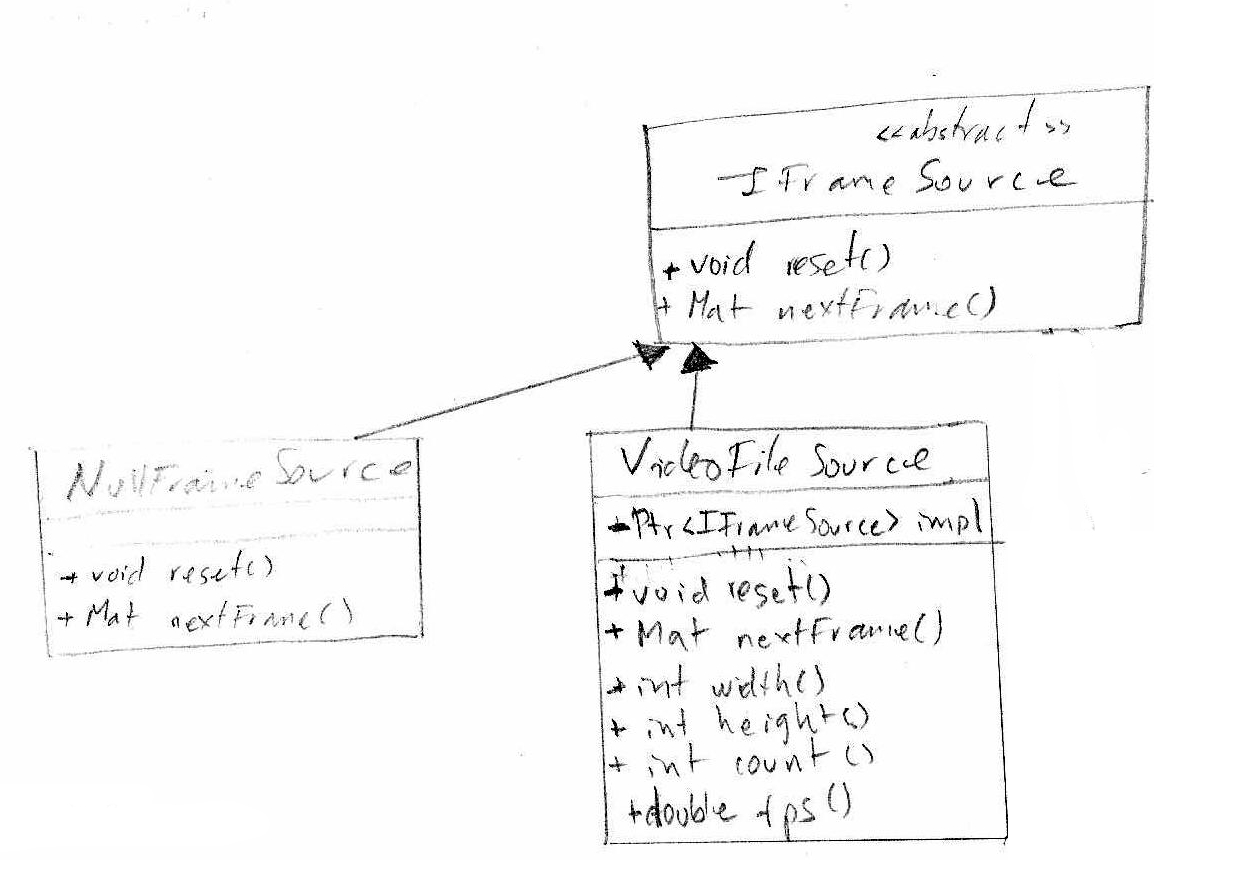 <<abstract>>
IFrameSource
+ void reset()
+ Mat nextFrame()
NullFrameSource
+ void reset()
+ Mat nextFrame()
VideoFileSource
-Ptr<IFrameSource> impl
+ void reset()
+ Mat nextFrame()
+ int width()
+ int height()
+ int count()
+double fps()